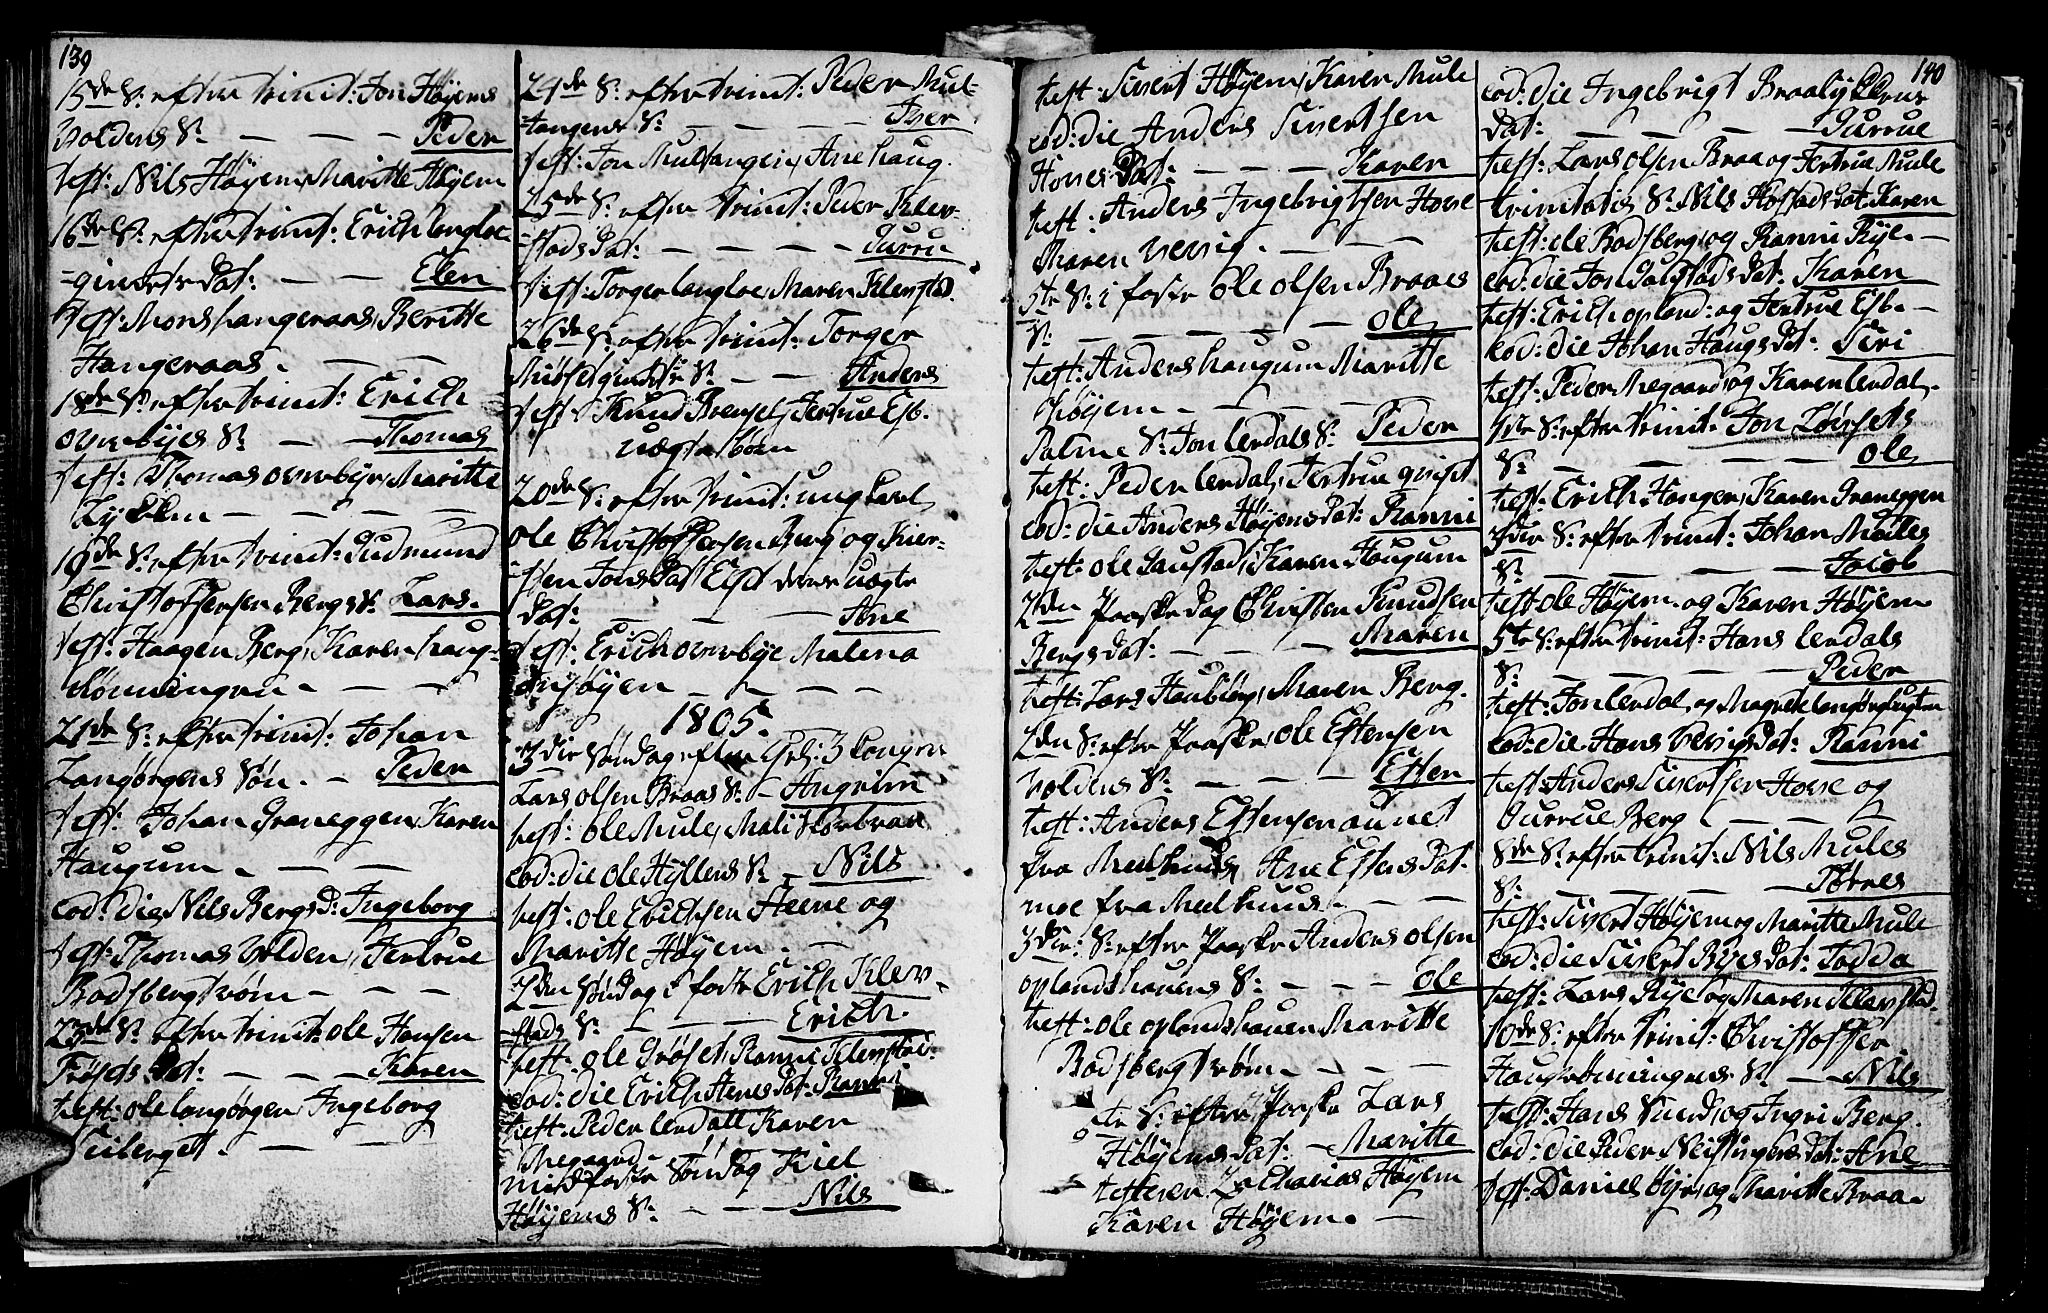 139
15de S: efter trinit: Jon Høyems
Voldens S: — — — Peder
test: Nils Høyem, Maritte Høyem
16de S: efter trinit: Erich Langloe
gindets Dat: — — Elen
test: Mons Hangeraas, Beritte
Hangeraas. — — —
18de S: efter trinit: Erich
overbyes S: — — Thomas
test: Thomas overbye, Maritte
Lykken — — — —
19de S: efter trinit: Gudmund
Christoffersen Bergs S: Lars.
test: Haagen Berg, Karen haug-
rønningen — — —
21de S: efter trinit: Johan
Langørgens Søn. — Peder
test: Johan Graneggen, Karen
Haugum. — — —
eod: die Nils Bergs D: Ingeborg
test: Thomas Volden, Jertrue
Bodsbergtrøen — — —
23de S: efter trinit: ole Hansen
Frøsets Dat: — — — Karen
test: ole langørgen, Ingeborg
— — —
24de S: efter trinit: Peder Mul-
tangens S: — — — — Iver
test: Jon Multangen, Ane haug.
25de S: efter trinit: Peder Klev-
stads Dat: — — — — Gurru
test: Torger langloe, Maren Klevstad.
26de S: efter trinit: Torger
S: — — Anders
test: Knud Brenset, Jertrue Esb.
uægte børn
20de S: efter trinit: ungkarl
ole Christoffersen Berg og Kier-
sten Jons Dat Eist deres uægte
Dat: — — — — Ane
test: Erich overbye Malena
— — —
1805.
3die Søndag efter Hel: 3 Konger
Lars olsen Braaes S: — Angrim
test: ole Mule, Mali
eod: die ole Hyllens S: — Nils
test: ole Erichsen Steene og
Maritte Høyem. —
2den Søndag i faste Erich Klev-
stads S: — — — Erich.
test. ole Grøset, Ranni Klevstad.
eod: die Erich Stenes Dat: Ranni
test: Peder lerdall Karen
Megaard — —
midfaste Søndag Kiel
Høyems S: — — Nils
test: Sivert Høyem, Karen Mule
eod: die Anders Sivertsen
Hoves Dat: — — — Karen
test: Anders Ingebrigtsen Hove
Maren vevig. — — — —
5te S: i faste ole olsen Braaes
S: — — — — — ole
test: Anders haugum Maritte
Høyem — — —
Palme S: Jon lerdals S: Peder
test: Peder lerdal, Jertrue qvist
eod: die Anders Høyems Dat: Ranni
test: ole Gaustad, Karen Haugum
2den Paaske Dag Christen Knudsen
Bergs Dat: — — — Maren
test: Lars Haukberg, Maren Berg.
2den S: efter Paaske, ole Estensen
Voldens S: — — — Esten
test: Anders Estensen aunet
fra Medhuus, Ane Estens Dat.
moe fra Medhuus. — —
3die: S: efter Paaske Anders olsen
oplandshauens S: — — — ole
test: ole oplandshauen Maritte
Bodsbergtrøen — — — —
S: efter Paaske Lars
Høyems Dat: — Maritte
testeren Zacharias Høyem
Karen Høyem. —
140
eod: die Ingebrigt Braalykkens
Dat: — — — — Gurrue
test: Lars olsen Braa og Jertrue Mule
trinitatis S: Nils Hofstads Dat Karen
test: ole Bodsberg, og Ranni Rye. —
eod: die Jon Gaustads Dat: Karen
test: Erich opland: og Jertrue Esb. —
eod: die Johan Haugs Dat: Siri
test: Peder Megaard, og Karen lerdal.
1ste S: efter trinit: Jon Lørsets
S: — — — — ole
test: Erich Hangen, Karen Graneggen
3die S: efter trinit: Johan Mules
S: — — — — Jacob
test ole Høyem og Karen Høyem
5te S: efter trinit: Hans lerdals
S: — — — — Peder
test: Jon lerdal, og Magrete
eod: die Hans Vevigs Dat: Ranni
test: Anders Sivertsen Hove og
Gurrue Berg — — —
8de S: efter trinit: Nils Mules
S: — — — — Tørres
test: Sivert Høyem og Maritte Mule
eod: die Sivert Ryes Dat: Todda
test: Lars Rye og Maren Klevstad.
10de S: efter trinit: Christoffer
Haugrønningens S: — Nils
test: Hans Sund, og Ingri Berg.
eod: die Peder Dat: Ane
test: Daniel Øye, og Maritte Braa.